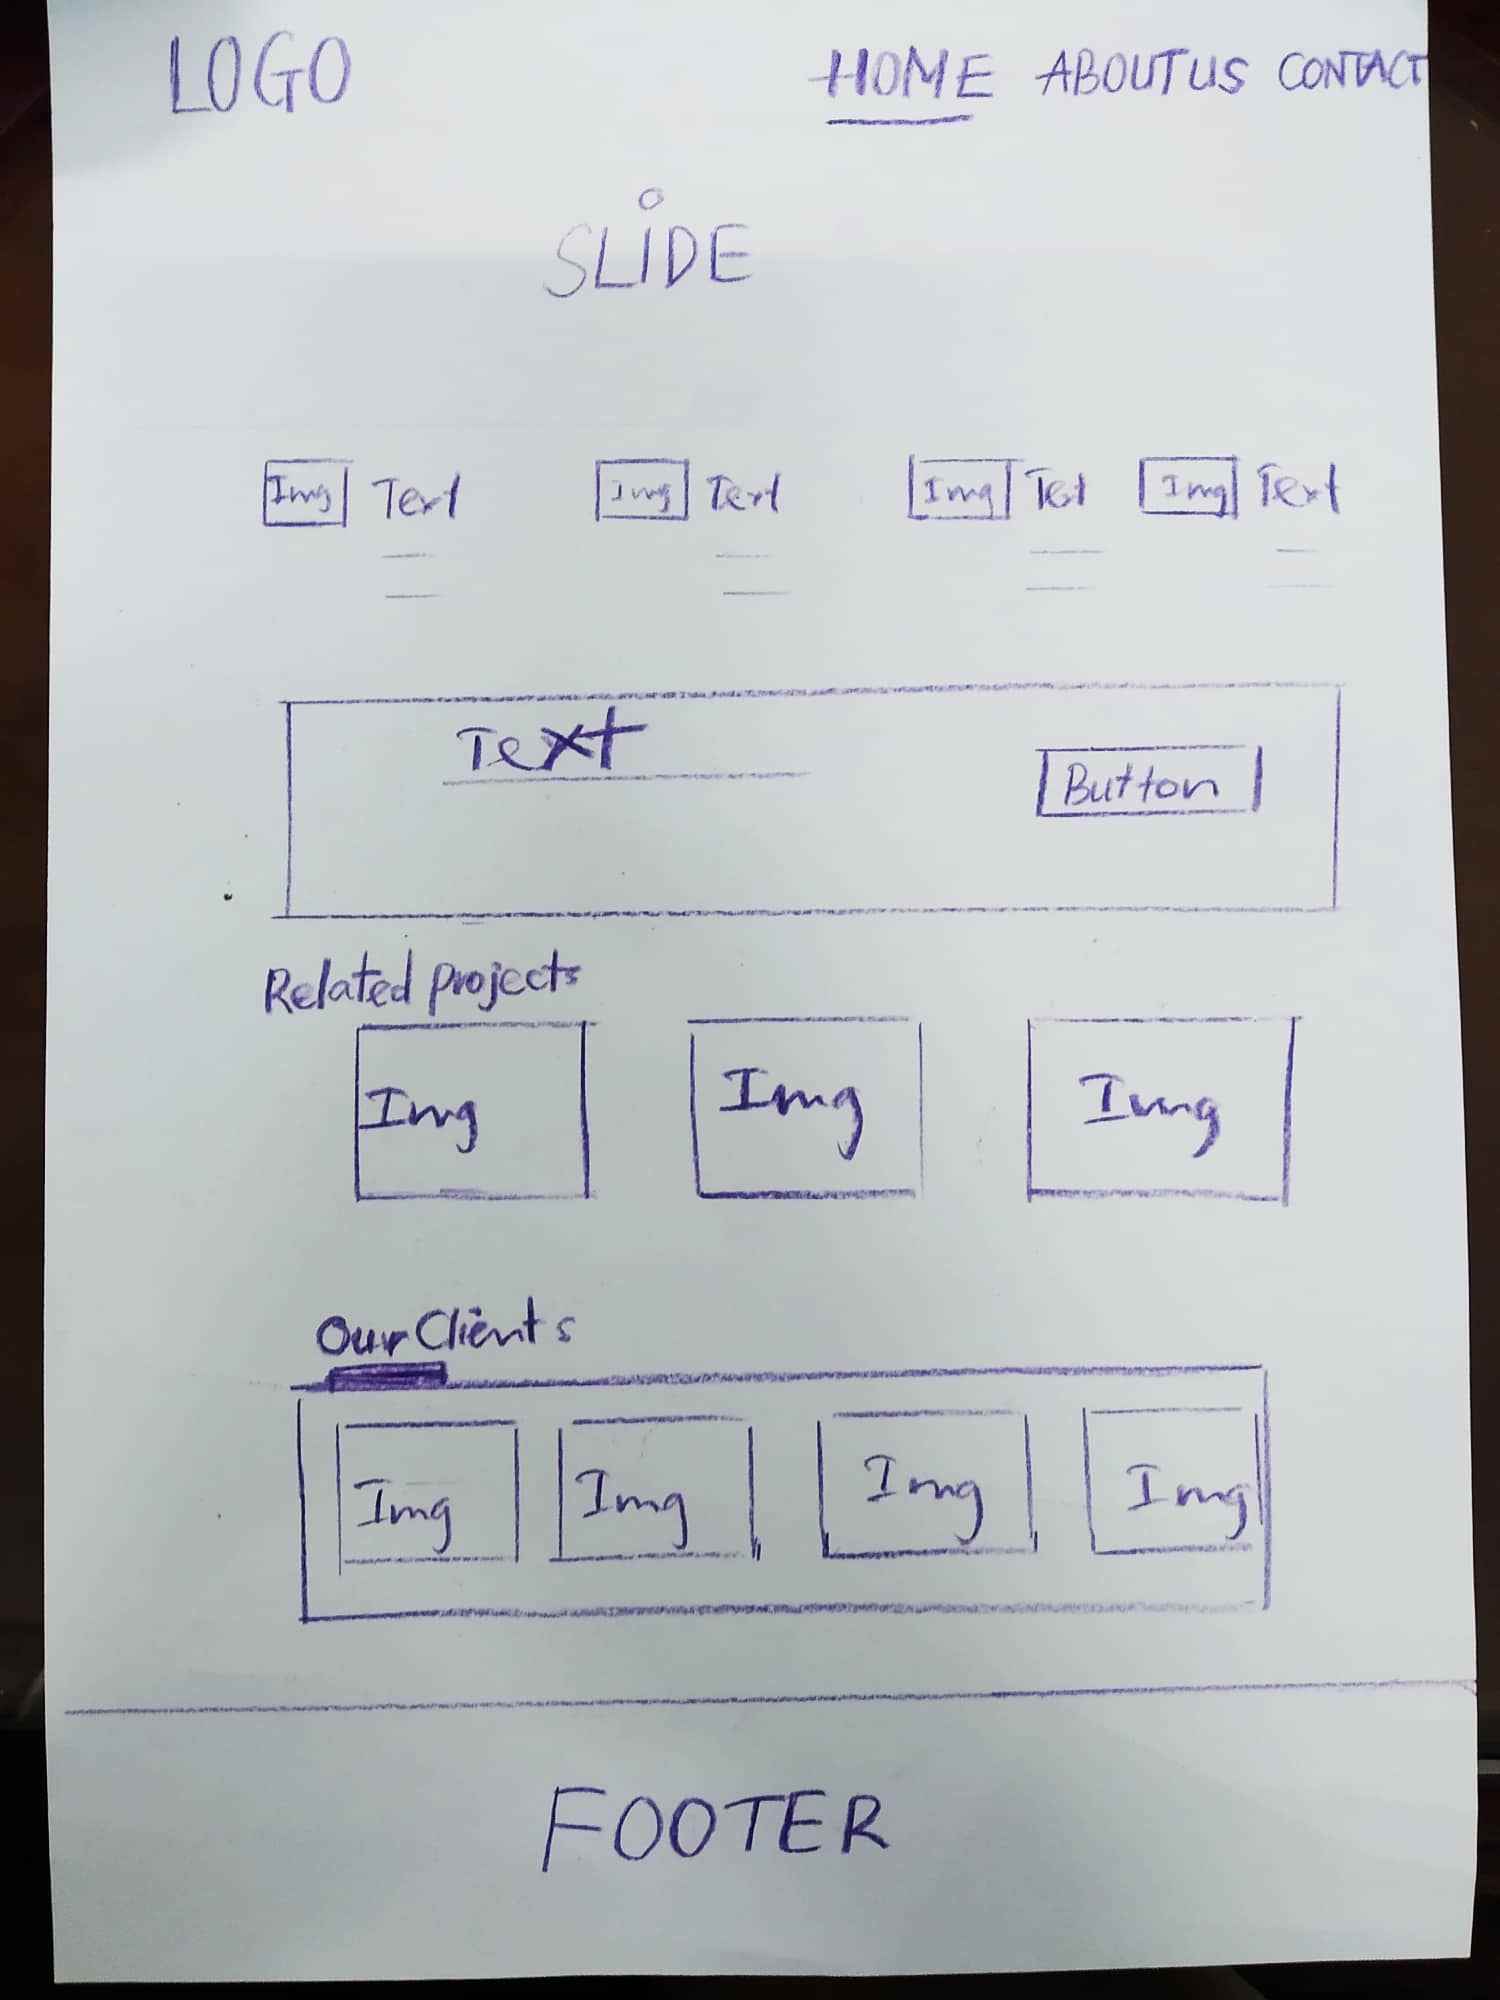 LOGO HOME ABOUT US CONTACT
SLIDE
Img Text Img Text Img Text Img Text
Text
Button
Related projects
Img Img Img
Our Clients
Img Img Img Img
FOOTER